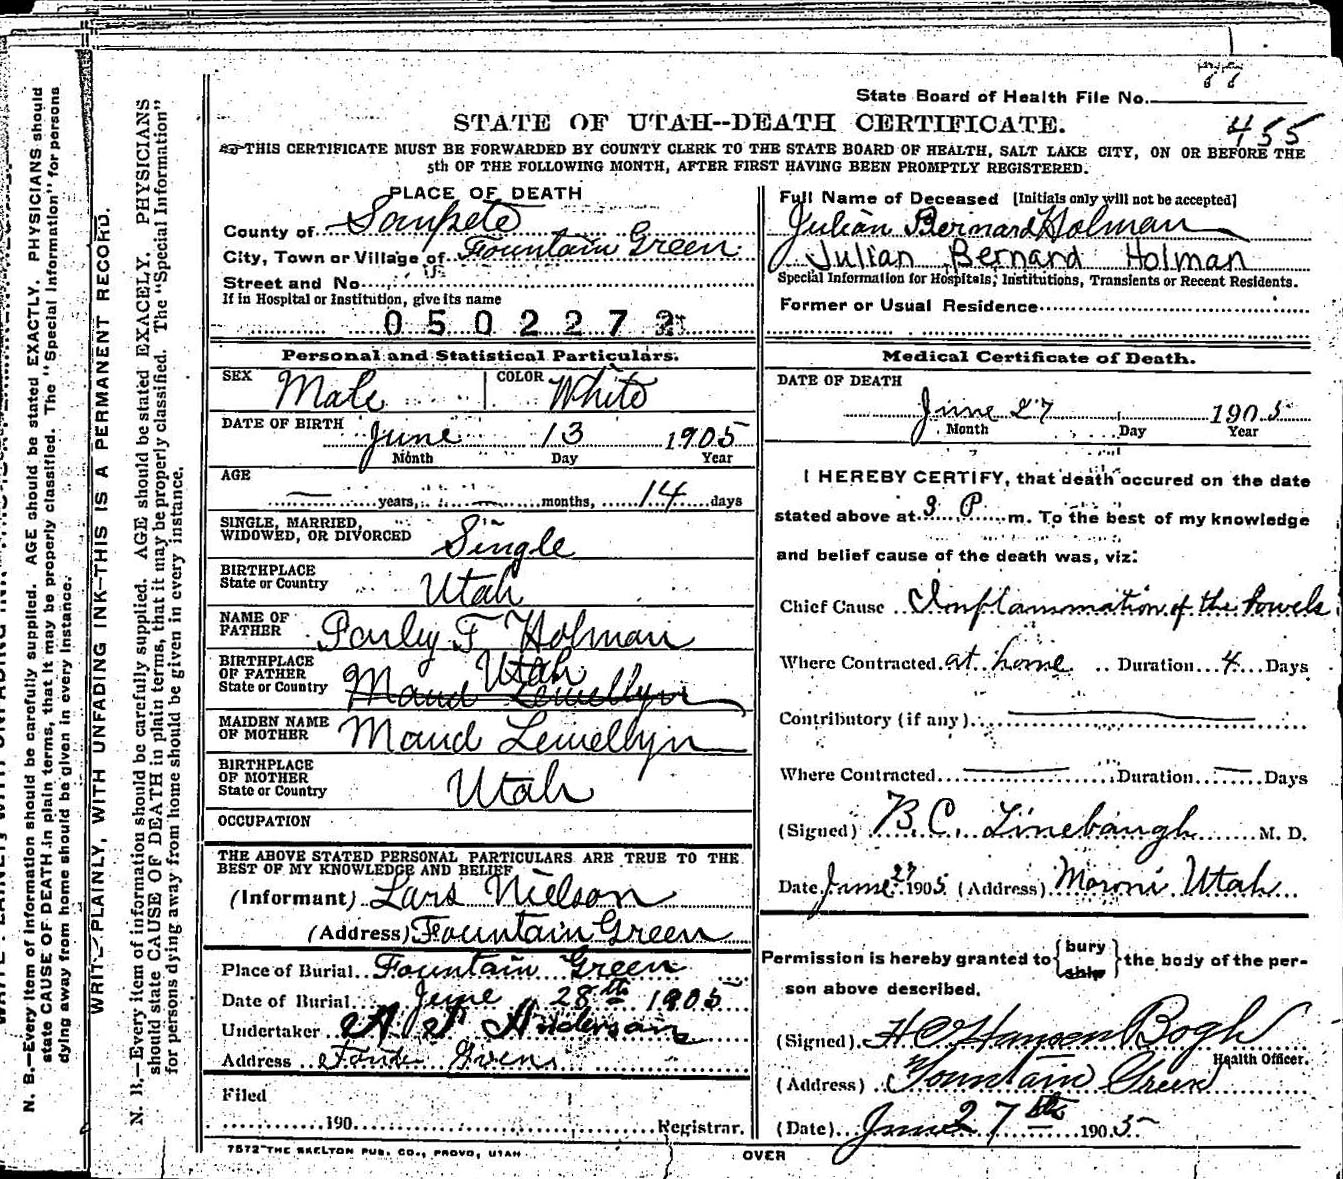 N. B.—Every item of information should be carefully supplied. AGE should be stated EXACTLY. PHYSICIANS should
state CAUSE OF DEATH in plain terms, that it may be properly classified. The "Special Information" for persons
dying away from home should be given in every instance.
WRITE PLAINLY, WITH UNFADING INK—THIS IS A PERMANENT RECORD.
N. B.—Every item of information should be carefully supplied. AGE should be stated EXACELY. PHYSICIANS
should state CAUSE OF DEATH in plain terms, that it may be properly classified. The "Special Information"
for persons dying away from home should be given in every instance.
State Board of Health File No.
STATE OF UTAH--DEATH CERTIFICATE. 455
THIS CERTIFICATE MUST BE FORWARDED BY COUNTY CLERK TO THE STATE BOARD OF HEALTH, SALT LAKE CITY, ON OR BEFORE THE
5th OF THE FOLLOWING MONTH, AFTER FIRST HAVING BEEN PROMPTLY REGISTERED.
PLACE OF DEATH
County of Sanpete
City, Town or Village of Fountain Green
Street and No
If in Hospital or Institution, give its name
0502272
Personal and Statistical Particulars.
SEX Male COLOR White
DATE OF BIRTH June 13 1905
Month Day Year
AGE
— years, — months, 14 days
SINGLE, MARRIED,
WIDOWED, OR DIVORCED Single
BIRTHPLACE
State or Country Utah
NAME OF
FATHER Parley F Holman
BIRTHPLACE
OF FATHER Utah
State or Country Maud Lewellyn
MAIDEN NAME
OF MOTHER Maud Lewellyn
BIRTHPLACE
OF MOTHER
State or Country Utah
OCCUPATION
THE ABOVE STATED PERSONAL PARTICULARS ARE TRUE TO THE
BEST OF MY KNOWLEDGE AND BELIEF
(Informant) Lars Nielson
(Address) Fountain Green
Place of Burial Fountain Green
Date of Burial June 28th 1905
Undertaker Anderson
Address Green
Filed
190 Registrar.
7572 THE SKELTON PUB. CO., PROVO, UTAH
Full Name of Deceased [Initials only will not be accepted]
Julian Bernard Holman
Julian Bernard Holman
Special Information for Hospitals, Institutions, Transients or Recent Residents.
Former or Usual Residence
Medical Certificate of Death.
DATE OF DEATH
June 27 1905
Month Day Year
I HEREBY CERTIFY, that death occured on the date
stated above at 3 P m. To the best of my knowledge
and belief cause of the death was, viz:
Chief Cause Inflammation of the bowels
Where Contracted at home Duration 4 Days
Contributory (if any) —
Where Contracted — Duration — Days
(Signed) B.C. Linebaugh M. D.
Date June 27 1905 (Address) Moroni Utah
Permission is hereby granted to {bury ship} the body of the per-
son above described.
(Signed) H C Hansen Bogh
Health Officer.
(Address) Fountain Green
(Date) June 27th 1905
OVER